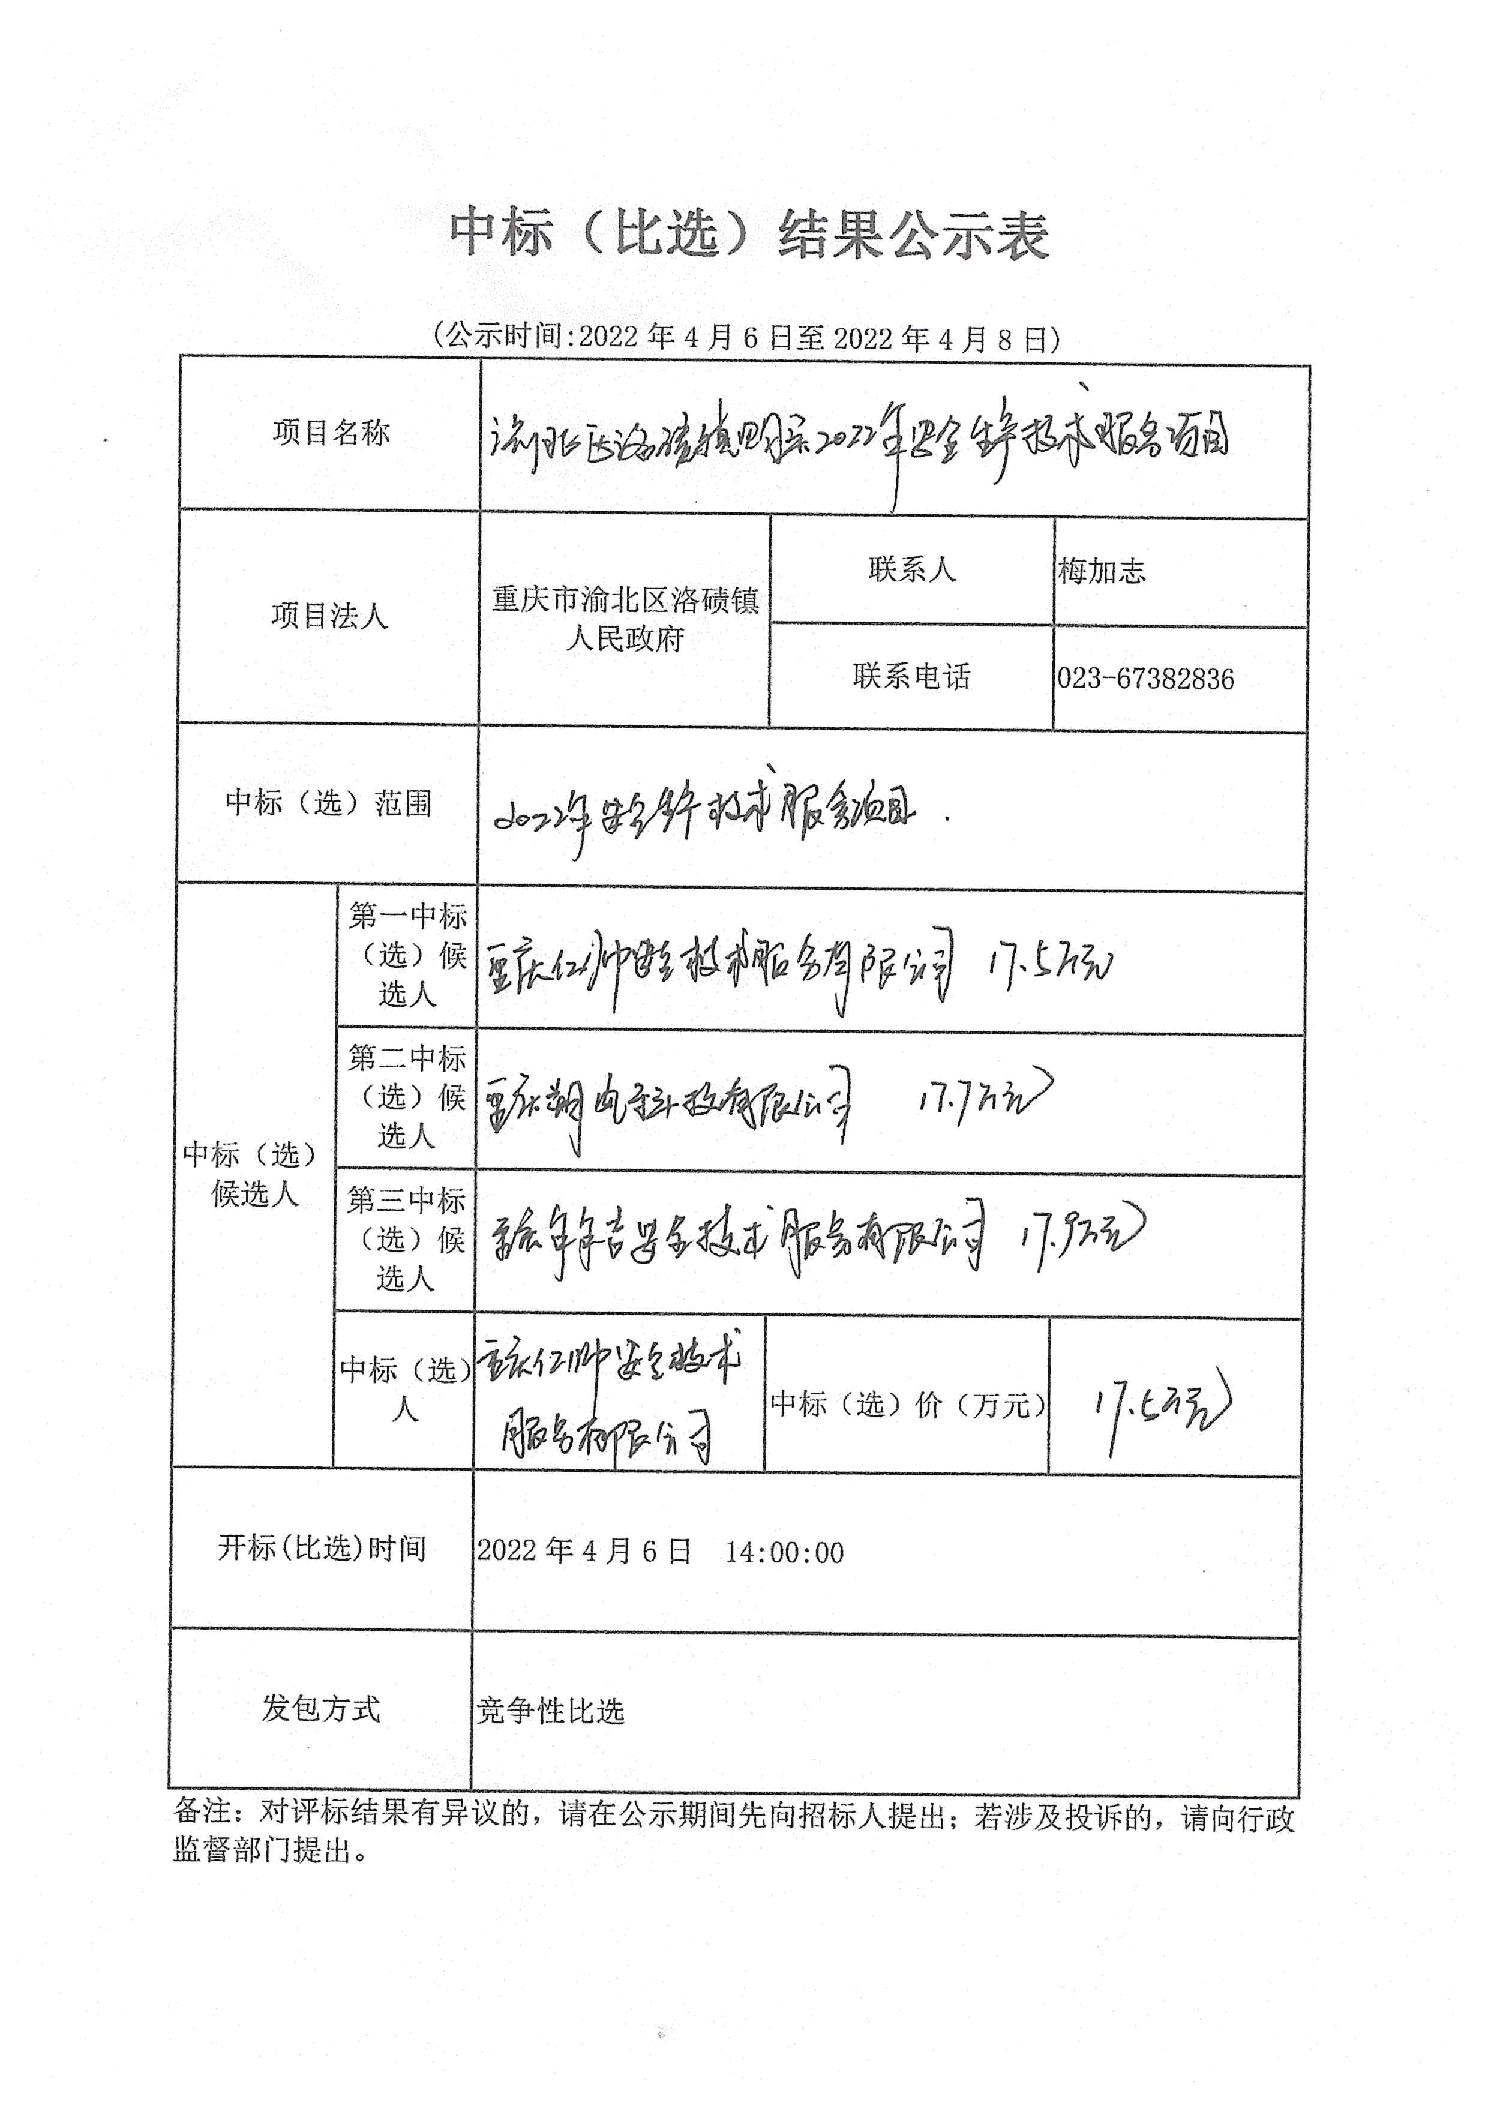 中标（比选）结果公示表
(公示时间:2022年4月6日至2022年4月8日)
项目名称
渝北区洛碛镇 2022年安全生产技术服务项目
项目法人
重庆市渝北区洛碛镇
人民政府
联系人
梅加志
联系电话
023-67382836
中标（选）范围
2022年安全生产技术服务项目.
中标（选）
候选人
第一中标
（选）候
选人
重庆仁帅安全技术服务有限公司 17.5万元
第二中标
（选）候
选人
重庆 科技有限公司 17.7万元
第三中标
（选）候
选人
重庆年年吉安全技术服务有限公司 17.9万元
中标（选）
人
重庆仁帅安全技术
服务有限公司
中标（选）价（万元）
17.5万元
开标(比选)时间
2022年4月6日 14:00:00
发包方式
竞争性比选
备注：对评标结果有异议的，请在公示期间先向招标人提出；若涉及投诉的，请向行政
监督部门提出。